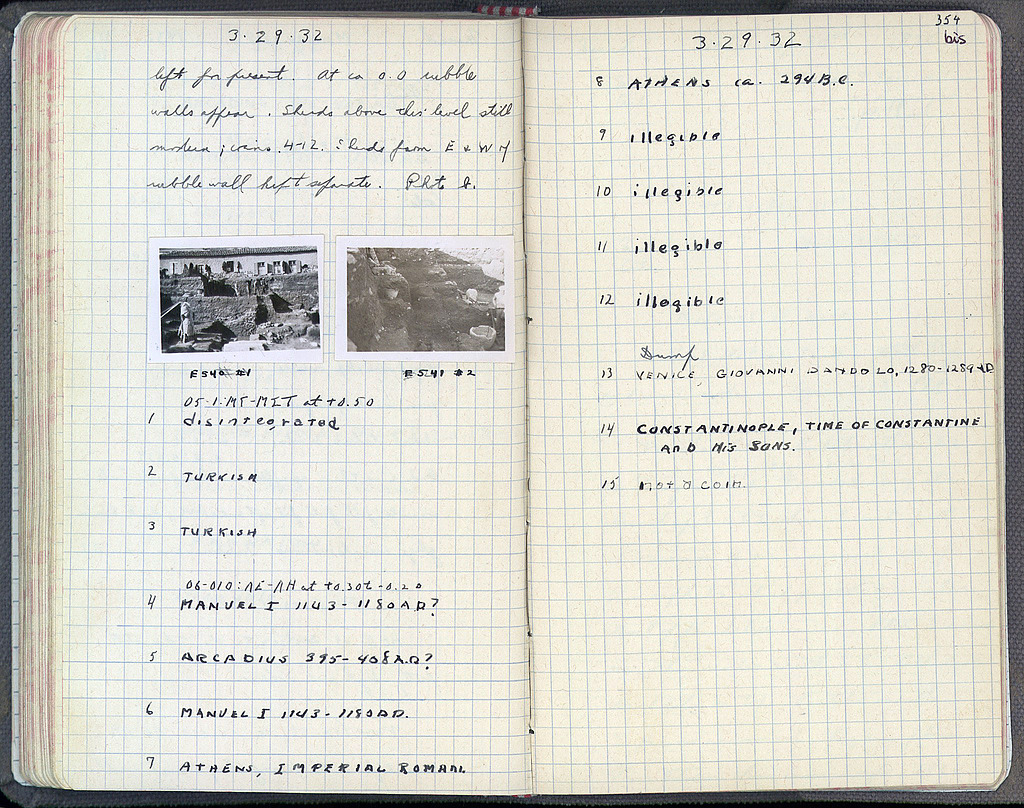 3·29·32
left for present. At ca 0.0 rubble
walls appear. Sherds above this level still
modern; coins 4-12. Sherds from E & W of
rubble wall kept separate. Photo
ES40 #1
ES41 #2
at +0.50
1 disintegrated
2 TURKISH
3 TURKISH
at +0.30 to -0.20
4 MANUEL I 1143-1180 A.D?
5 ARCADIUS 395-408 A.D?
6 MANUEL I 1143-1180 AD.
7 ATHENS, IMPERIAL ROMAN.
354
bis
3·29·32
8 ATHENS ca. 294 B.C.
9 illegible
10 illegible
11 illegible
12 illegible
Dump
13 VENICE, GIOVANNI DANDOLO, 1280-1289 AD
14 CONSTANTINOPLE, TIME OF CONSTANTINE
AND HIS SONS.
15 not a coin.